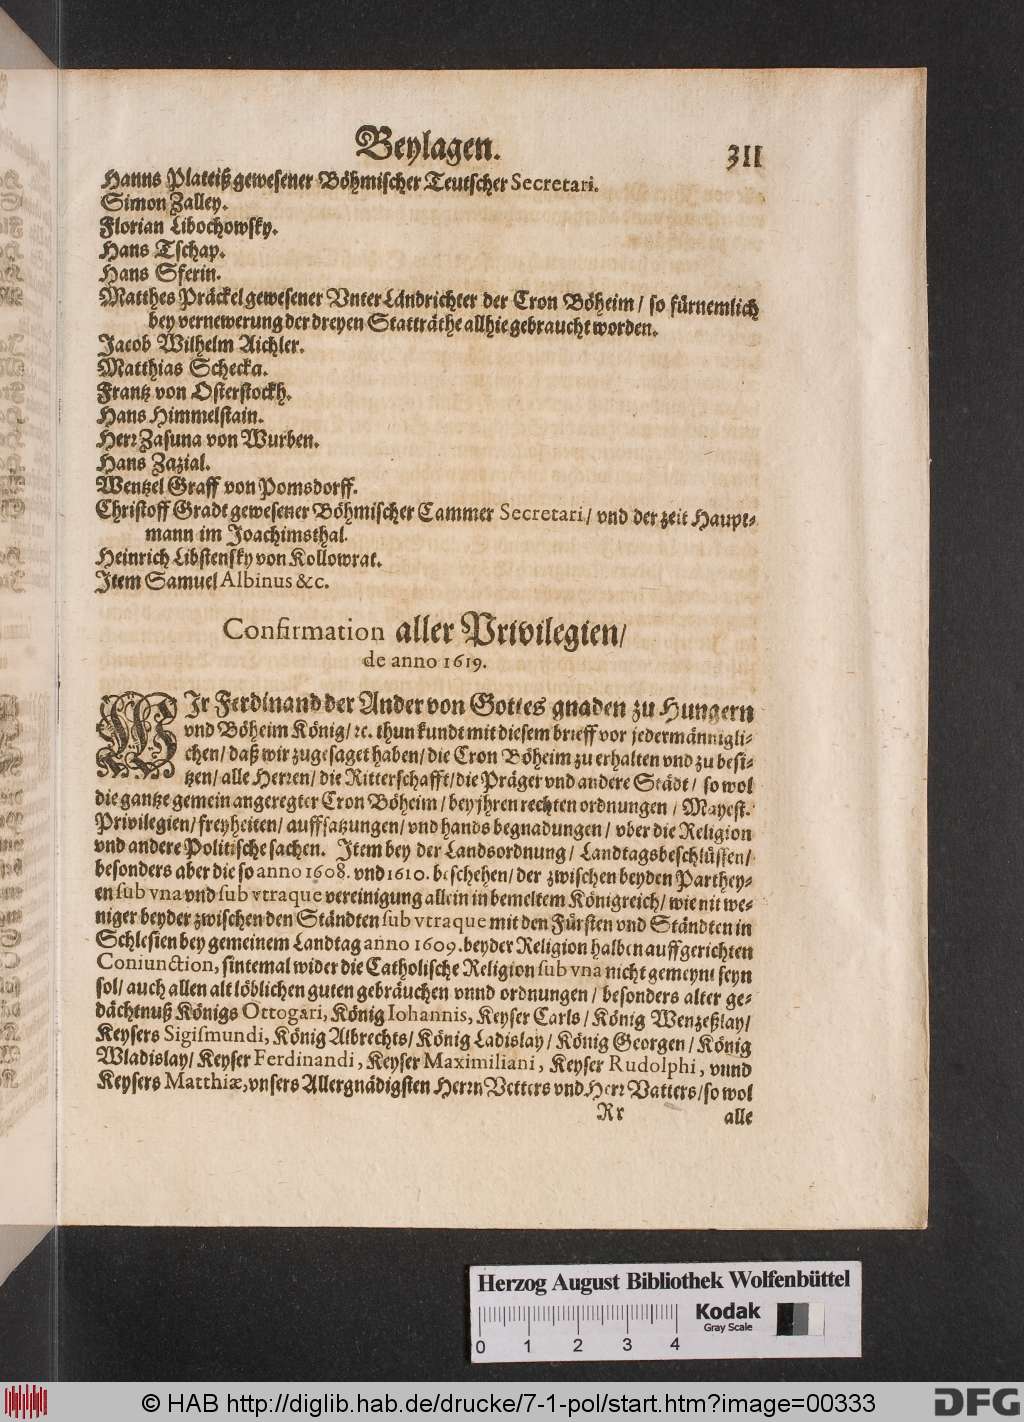 Beylagen.
311
Hanns Plateiß gewesener Böhmischer Teutscher Secretari.
Simon Zalley.
Florian Libochowsky.
Hans Tschap.
Hans Sferin.
Matthes Präckel gewesener Vnter Ländrichter der Cron Böheim / so fürnemlich
bey vernewerung der dreyen Statträthe allhie gebraucht worden.
Jacob Wilhelm Aichler.
Matthias Schecka.
Frantz von Osterstockh.
Hans Himmelstain.
Herr Zasuna von Wurben.
Hans Zazial.
Wentzel Graff von Pomsdorff.
Christoff Gradt gewesener Böhmischer Cammer Secretari / vnd der zeit Haupt-
mann im Joachimsthal.
Heinrich Libstensky von Kollowrat.
Item Samuel Albinus &c.
Confirmation aller Privilegien/
de anno 1619.
WIr Ferdinand der Ander von Gottes gnaden zu Hungern
vnd Böheim König/ ꝛc. thun kundt mit diesem brieff vor jedermännigli-
chen/ daß wir zugesaget haben/ die Cron Böheim zu erhalten vnd zu besi-
tzen/ alle Herren/ die Ritterschafft/ die Präger vnd andere Städt/ so wol
die gantze gemein angeregter Cron Böheim / bey jhren rechten ordnungen / Mayest.
Privilegien/ freyheiten/ auffsatzungen/ vnd hands begnadungen / vber die Religion
vnd andere Politische sachen. Item bey der Landsordnung/ Landtagsbeschlüssen/
besonders aber die so anno 1608. vnd 1610. beschehen/ der zwischen beyden Parthey-
en sub vna vnd sub vtraque vereinigung allein in bemeltem Königreich/ wie nit we-
niger beyder zwischen den Ständten sub vtraque mit den Fürsten vnd Ständten in
Schlesien bey gemeinem Landtag anno 1609. beyder Religion halben auffgerichten
Coniunction, sintemal wider die Catholische Religion sub vna nicht gemeynt seyn
sol/ auch allen alt löblichen guten gebräuchen vnnd ordnungen / besonders alter ge-
dächtnuß Königs Ottogari, König Iohannis, Keyser Carls / König Wenzeßlay/
Keysers Sigismundi, König Albrechts/ König Ladislay / König Georgen / König
Wladislay/ Keyser Ferdinandi, Keyser Maximiliani, Keyser Rudolphi, vnnd
Keysers Matthiæ, vnsers Allergnädigsten Herrn Vetters vnd Herr Vatters/ so wol
Rr
alle
Herzog August Bibliothek Wolfenbüttel
0 1 2 3 4
Kodak
Gray Scale
© HAB http://diglib.hab.de/drucke/7-1-pol/start.htm?image=00333
DFG